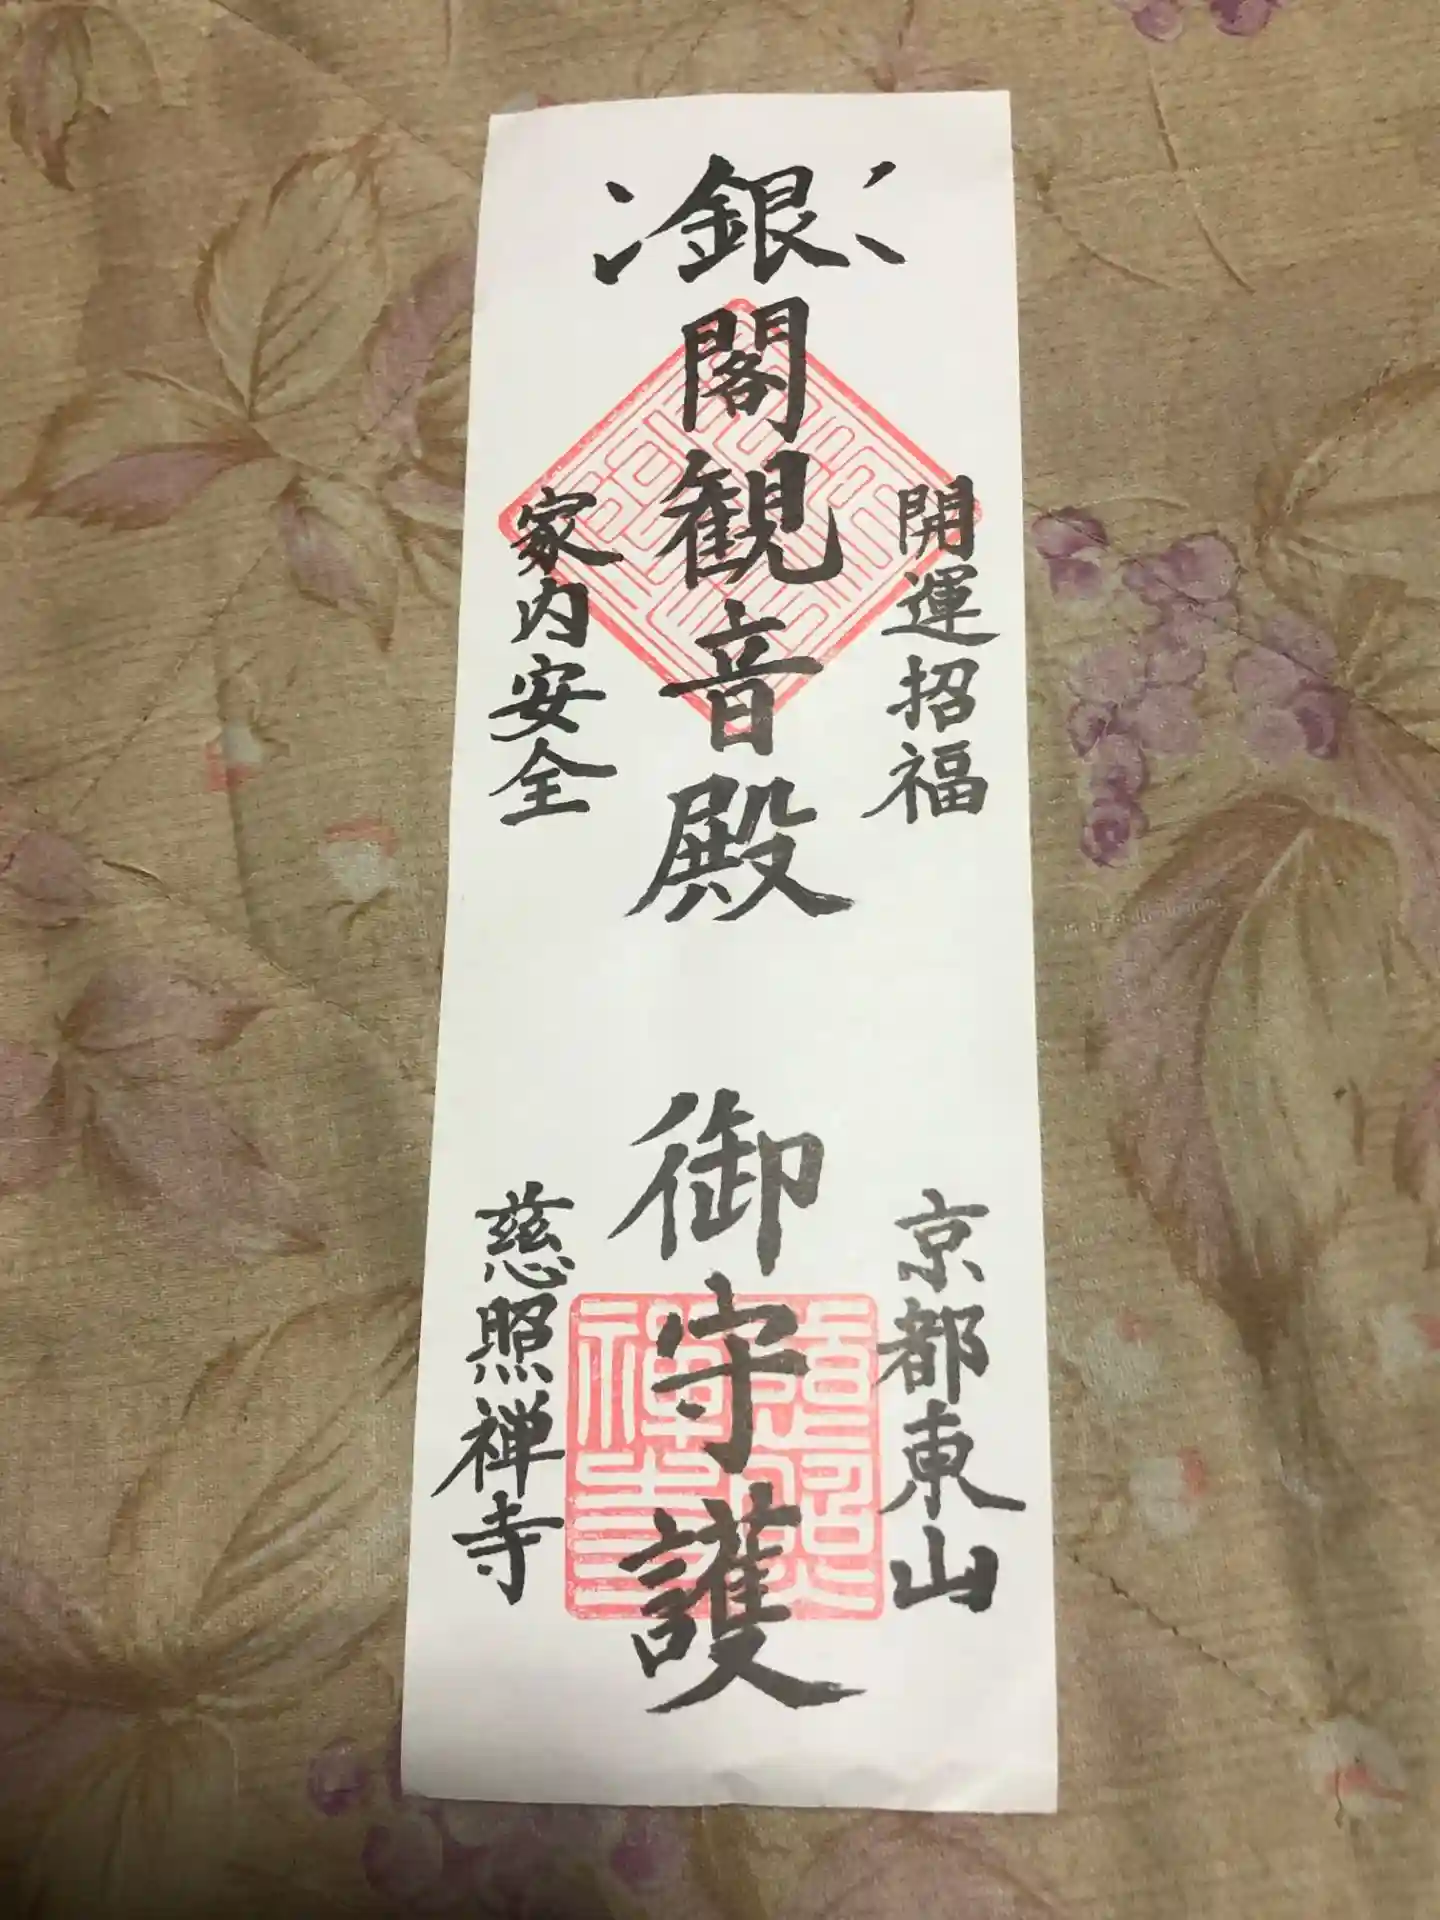 開運招福
銀閣観音殿
家内安全
京都東山
御守護
慈照禅寺